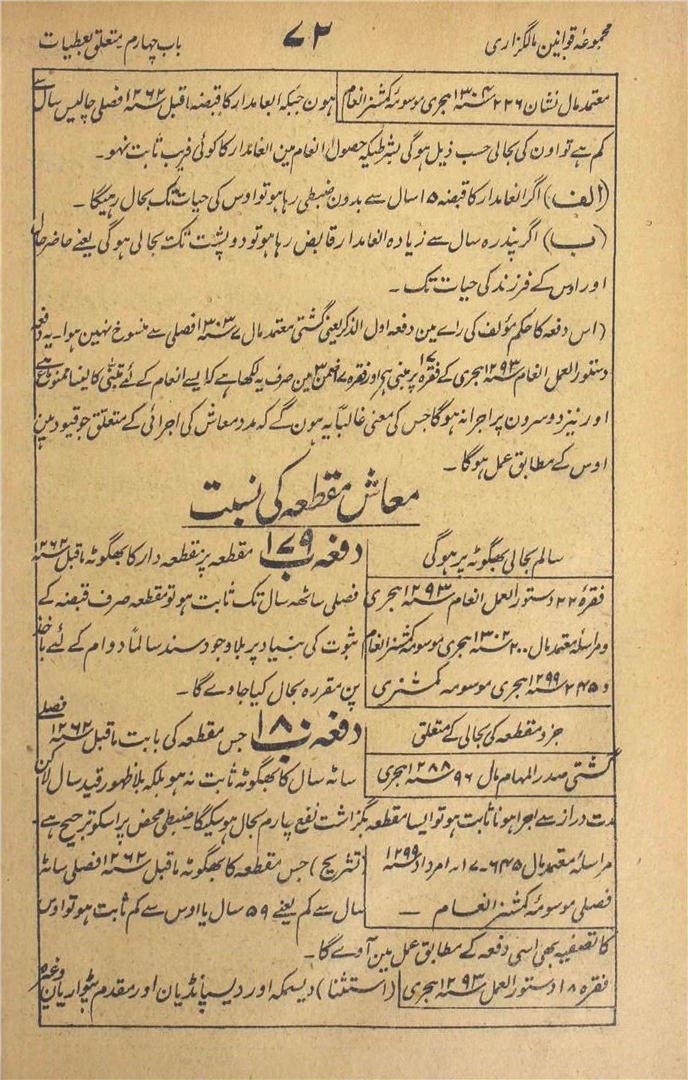 مجموعہ قوانین مالگزاری
۷۲
باب چہارم۔ متعلق بعطیات
معتمد مال نشان ۲۲۶ ۱۳۰۴ سنہ ہجری موسومۂ کمشنر انعام
ہون جبکہ انعامدار کا قبضہ ماقبل ۱۲۶۲ سنہ فصلی چالیس سال سے
کم ہے تو اون کی بحالی حسب ذیل ہوگی بشرطیکہ حصول انعام مین انعامدار کا کوئی فریب ثابت نہو۔
(الف) اگر انعامدار کا قبضہ ۱۵ سال سے بدون ضبطی رہا ہو تو اوس کی حیات تک بحال رہیگا۔
(ب) اگر پندرہ سال سے زیادہ انعامدار قابض رہا ہو تو دو پشت تک بحالی ہوگی یعنے حاضر حال
اور اوس کے فرزند کی حیات تک۔
(اس دفعہ کا حکم مؤلف کی راے مین دفعہ اول الذکر یعنی گشتی معتمد مال ۷ ۱۳۰۳ سنہ فصلی سے منسوخ نہین ہوا۔ یہ دفعہ
دستور العمل انعام ۱۲۹۳ سنہ ہجری کے فقرہ ۱۷ پر مبنی ہے اور فقرہ ۱۷ ضمن ۳ مین صرف یہ لکھا ہے کہ ایسے انعام کے لئے متبنّٰی کا لینا ممنوع ہے
اور نیز دوسرون پر اجرا نہوگا جس کی معنی غالباً یہ ہون گے کہ مدد معاش کی اجرائی کے متعلق جو قیود ہین
اوس کے مطابق عمل ہوگا۔
معاش مقطعہ کی نسبت
سالم بحالی بھگوٹہ پر ہوگی
دفعہ ۱۷۹ مقطعہ پر مقطعہ دار کا بھگوٹہ ماقبل ۱۲۶۲ سنہ
فقرۂ ۲۲ دستور العمل انعام ۱۲۹۳ سنہ ہجری
فصلی ساٹھ سال تک ثابت ہو تو مقطعہ صرف قبضہ کے
و مراسلۂ معتمد مال ۲۰۰ ۱۳۰۲ سنہ ہجری موسومۂ کمشنر انعام
ثبوت کی بنیاد پر بلا وجود سند سالماً دوام کے لئے باخذ
و ۲۴۵ ۱۲۹۹ سنہ ہجری موسومہ کمشنری
پن مقررہ بحال کیا جاوے گا۔
جزو مقطعہ کی بحالی کے متعلق
دفعہ ۱۸۰ جس مقطعہ کی بابت ماقبل ۱۲۶۲ سنہ فصلی
گشتی صدر المہام مال ۹۶ ۱۲۸۸ سنہ ہجری
ساٹہ سال کا بھگوٹہ ثابت نہ ہو بلکہ بلا ظہور قید سال لاکن
مدت دراز سے اجرا ہونا ثابت ہو تو ایسا مقطعہ بگزاشت نفع پارم بحال ہو سکیگا۔ ضبطی محض پر اسکو ترجیح ہے۔
مراسلۂ معتمد مال ۶۴۵۔ ۱۷؍ امرداد ۱۲۹۹ سنہ
(تشریح) جس مقطعہ کا بھگوٹہ ماقبل ۱۲۶۲ سنہ فصلی ساٹہ
فصلی موسومۂ کمشنر انعام —
سال سے کم یعنے ۵۹ سال یا اوس سے کم ثابت ہو تو اوس
کا تصفیہ بھی اسی دفعہ کے مطابق عمل مین آوے گا۔
فقرہ ۱۸ دستور العمل ۱۲۹۳ سنہ ہجری
(استثنا) دیسمکہ اور دیسپانڈیان اور مقدم پٹواریان وغیرہ